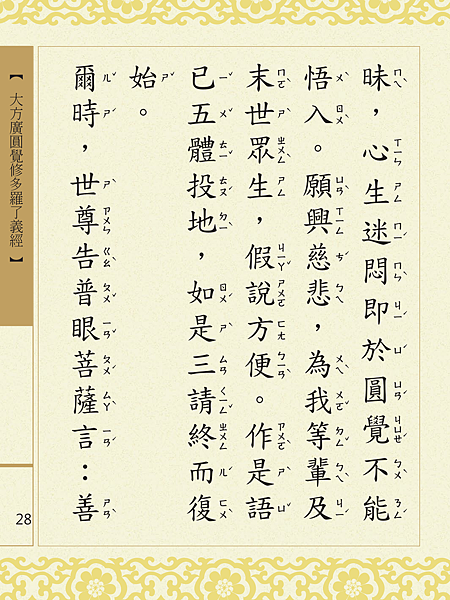 昧，心生迷悶即於圓覺不能
悟入。願興慈悲，為我等輩及
末世眾生，假說方便。作是語
已五體投地，如是三請終而復
始。
爾時，世尊告普眼菩薩言：善
【大方廣圓覺修多羅了義經】
28